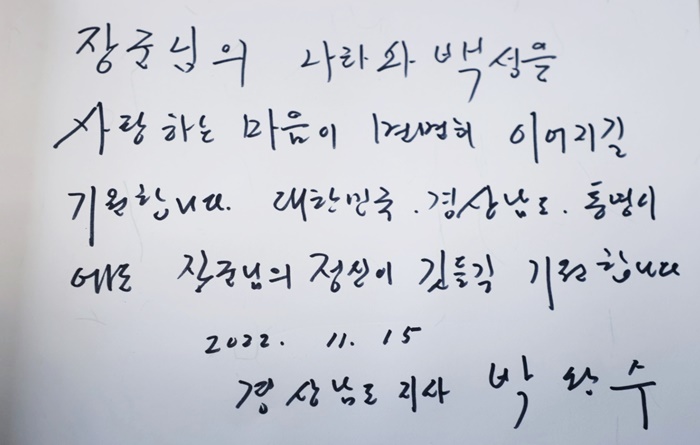 장군님의 나라와 백성을
사랑하는 마음이 면면히 이어지길
기원합니다. 대한민국. 경상남도. 통영시
에도 장군님의 정신이 깃들길 기원합니다
2022. 11. 15
경상남도지사 박완수